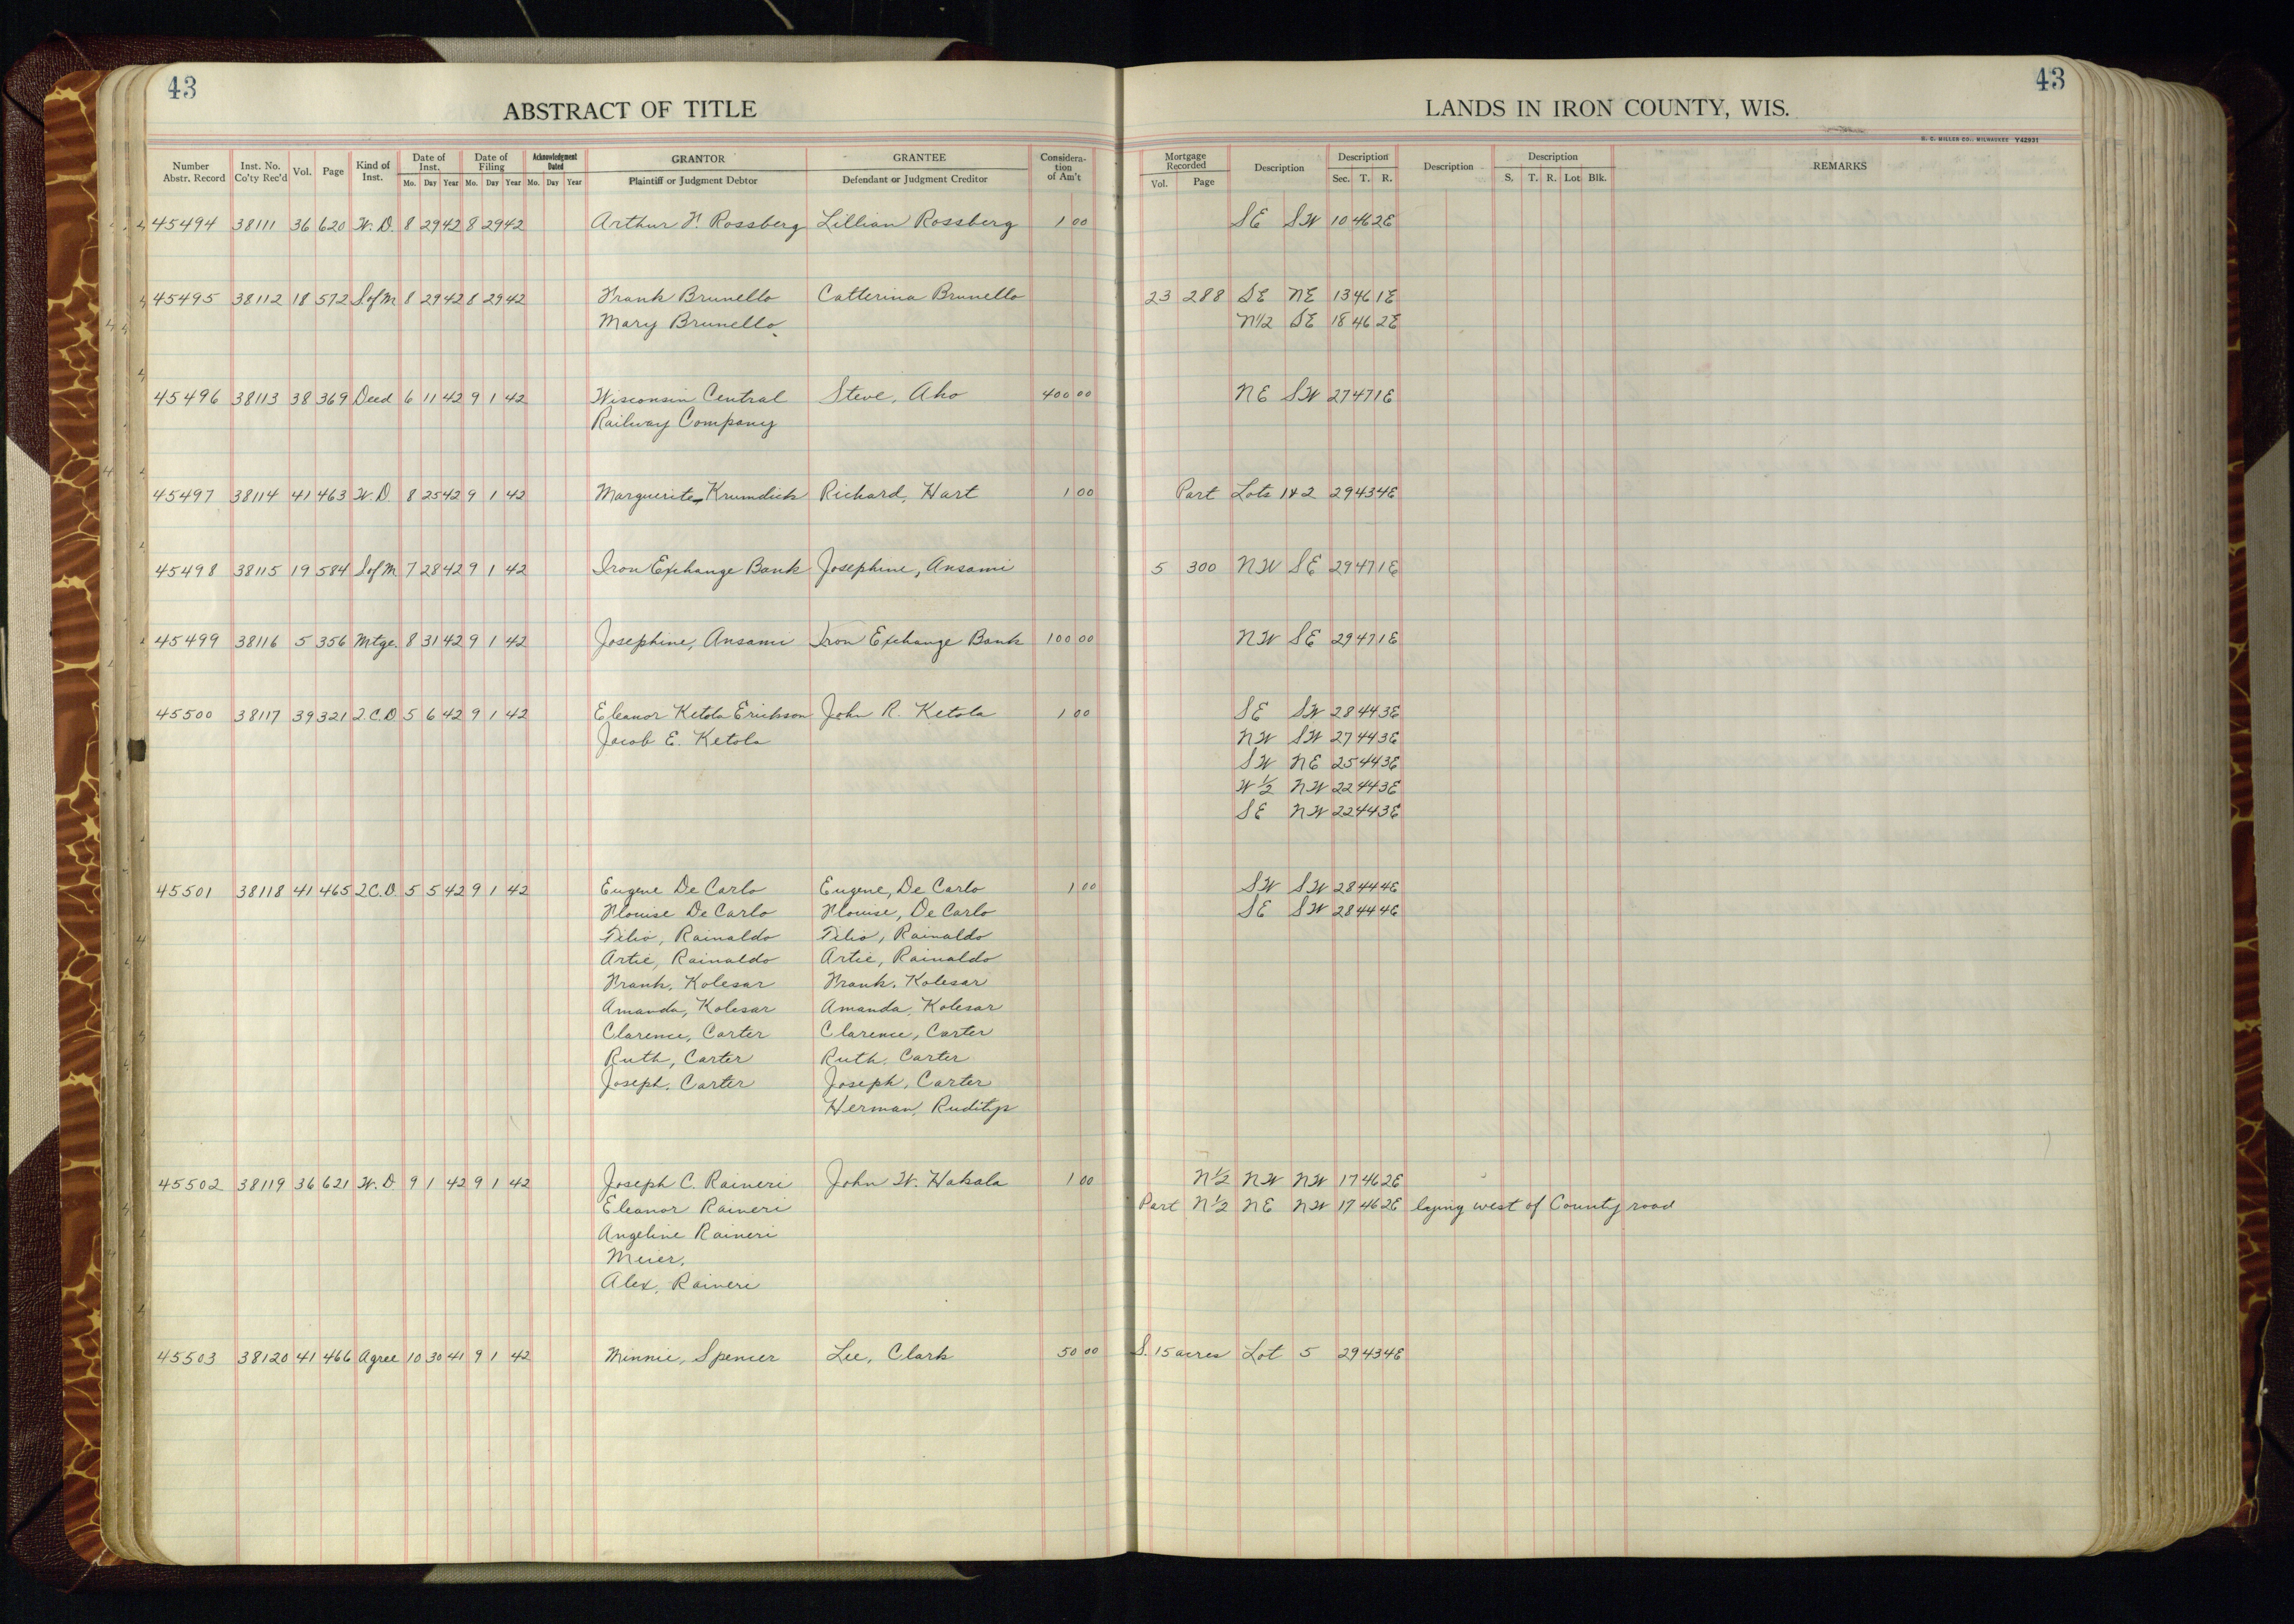 43
43
ABSTRACT OF TITLE
LANDS IN IRON COUNTY, WIS.
H. C. MILLER CO., MILWAUKEE Y42931
Number Abstr. Record Inst. No. Co'ty Rec'd Vol. Page Kind of Inst. Date of Inst. Mo. Day Year Date of Filing Mo. Day Year Acknowledgment Dated Mo. Day Year GRANTOR Plaintiff or Judgment Debtor GRANTEE Defendant or Judgment Creditor Consideration of Am't Mortgage Recorded Vol. Page Description Description Sec. T. R. Description Description S. T. R. Lot Blk. REMARKS
45494 38111 36 620 W. D. 8 29 42 8 29 42 Arthur Rossberg Lillian Rossberg 1 00 SE SW 10 46 2E
45495 38112 18 572 S of M 8 29 42 8 29 42 Frank Brunello Catterina Brunello 23 288 SE NE 13 46 1E
Mary Brunello N1/2 SE 18 46 2E
45496 38113 38 369 Deed 6 11 42 9 1 42 Wisconsin Central Steve, Aho 400 00 NE SW 27 47 1E
Railway Company
45497 38114 41 463 W. D 8 25 42 9 1 42 Marguerite Krumdick Richard, Hart 1 00 Part Lots 1 & 2 29 43 4E
45498 38115 19 584 S of M 7 28 42 9 1 42 Iron Exchange Bank Josephine, Ansami 5 300 NW SE 29 47 1E
45499 38116 5 356 Mtge. 8 31 42 9 1 42 Josephine, Ansami Iron Exchange Bank 100 00 NW SE 29 47 1E
45500 38117 39 321 2.C.D 5 6 42 9 1 42 Eleanor Ketola Erickson John R. Ketola 1 00 SE SW 28 44 3E
Jacob E. Ketola NW SW 27 44 3E
SW NE 25 44 3E
W 1/2 NW 22 44 3E
SE NW 22 44 3E
45501 38118 41 465 2.C.D. 5 5 42 9 1 42 Eugene De Carlo Eugene, De Carlo 1 00 SW SW 28 44 4E
De Carlo De Carlo SE SW 28 44 4E
Tilio, Rainaldo Tilio, Rainaldo
Artie, Rainaldo Artie, Rainaldo
Frank, Kolesar Frank, Kolesar
Amanda, Kolesar Amanda, Kolesar
Clarence, Carter Clarence, Carter
Ruth, Carter Ruth, Carter
Joseph, Carter Joseph, Carter
Herman,
45502 38119 36 621 W. D 9 1 42 9 1 42 Joseph C. Raineri John W. Hakala 1 00 N 1/2 NW NW 17 46 2E
Eleanor Raineri Part N 1/2 NE NW 17 46 2E lying west of County road
Angeline Raineri
Meier,
Alex, Raineri
45503 38120 41 466 Agree 10 30 41 9 1 42 Minnie, Spencer Lee, Clark 50 00 S. 15 acres Lot 5 29 43 4E